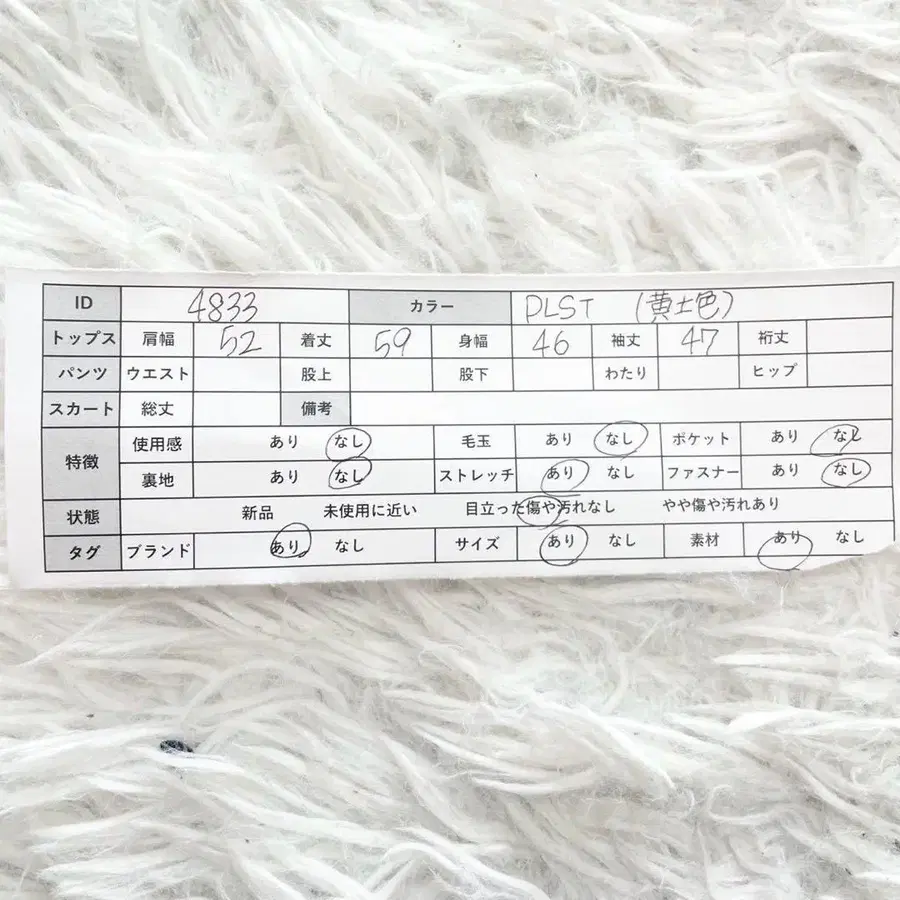 ID 4833 カラー PLST (黄土色)
トップス 肩幅 52 着丈 59 身幅 46 袖丈 47 裄丈
パンツ ウエスト 股上 股下 わたり ヒップ
スカート 総丈 備考
特徴 使用感 あり なし 毛玉 あり なし ポケット あり なし
裏地 あり なし ストレッチ あり なし ファスナー あり なし
状態 新品 未使用に近い 目立った傷や汚れなし やや傷や汚れあり
タグ ブランド あり なし サイズ あり なし 素材 あり なし